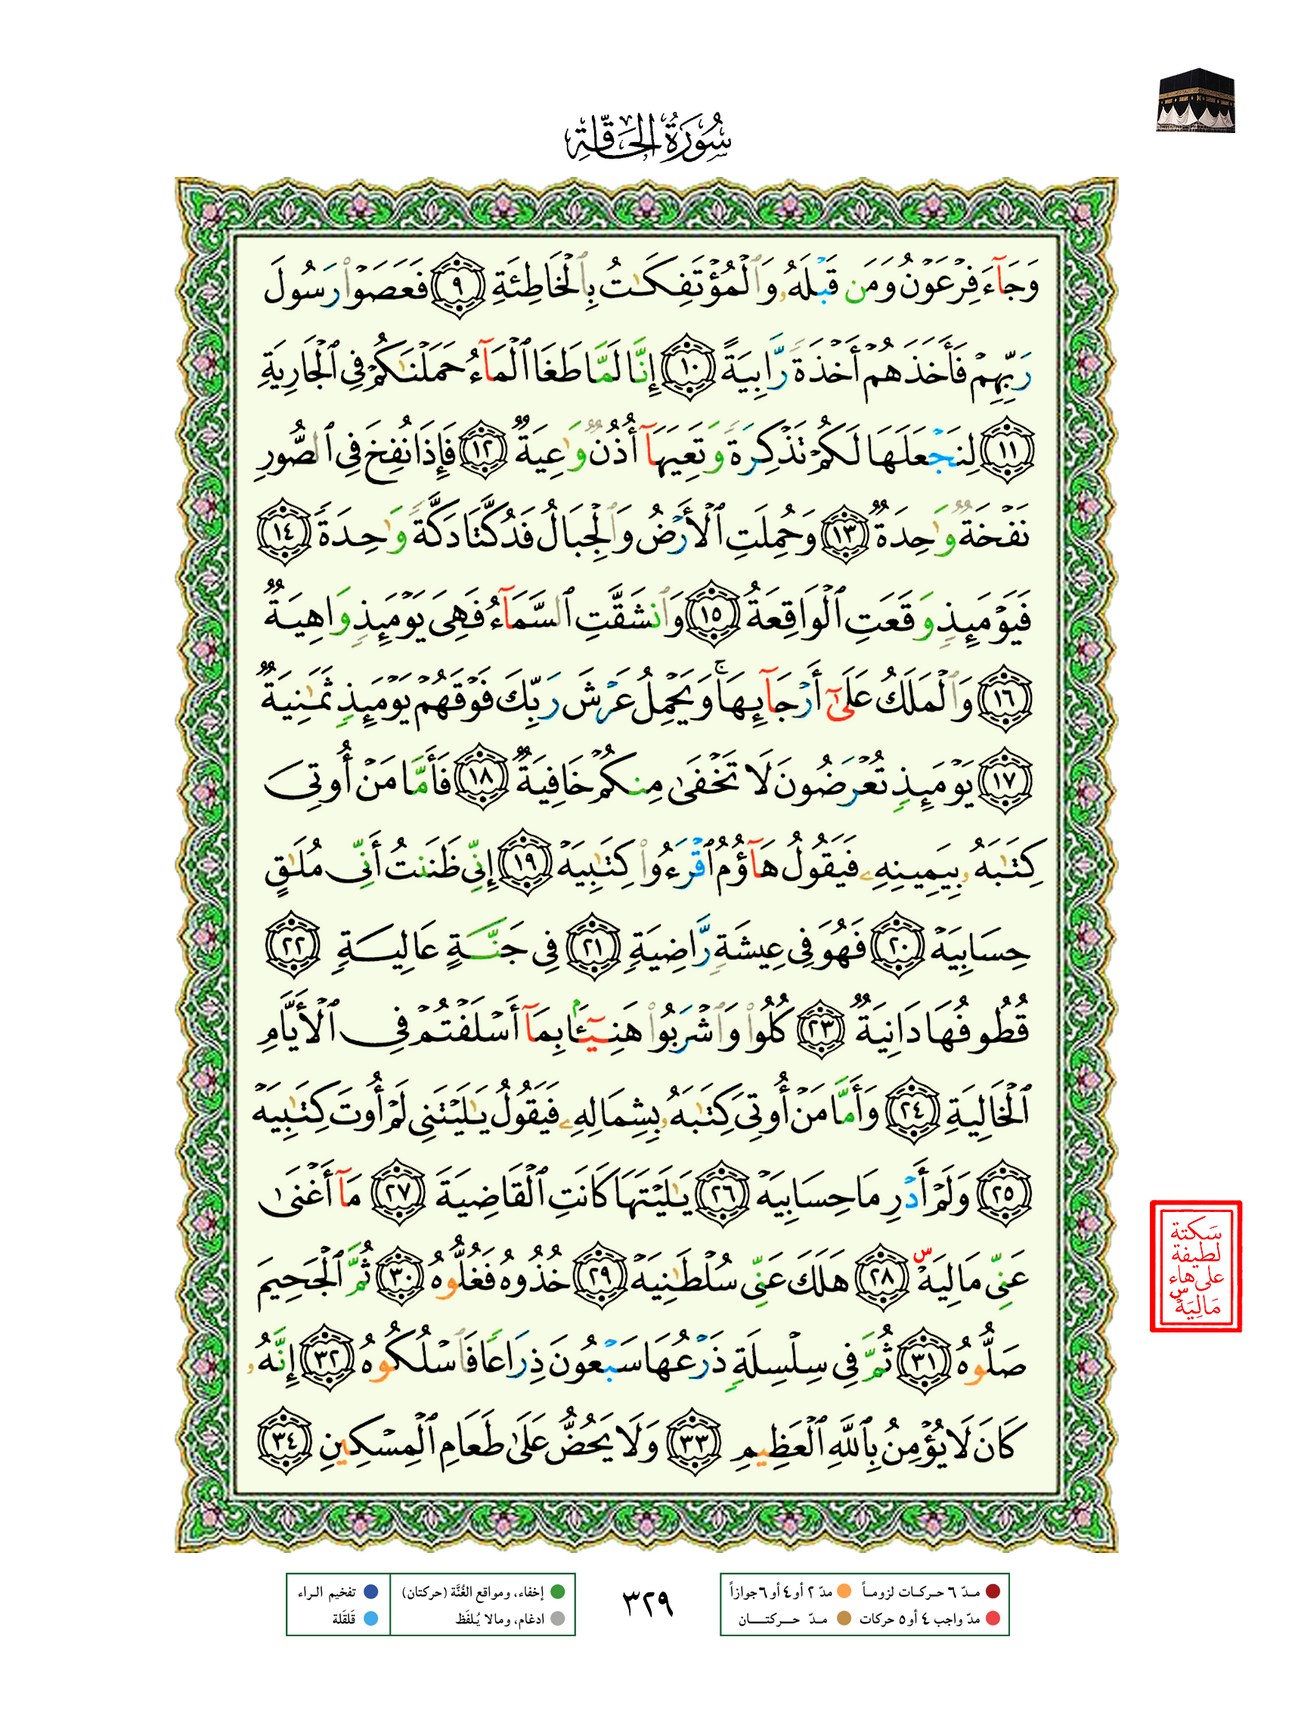 سُورَةُ الحَاقَّةِ
وَجَآءَ فِرْعَوْنُ وَمَن قَبْلَهُۥ وَٱلْمُؤْتَفِكَـٰتُ بِٱلْخَاطِئَةِ ٩ فَعَصَوْا۟ رَسُولَ
رَبِّهِمْ فَأَخَذَهُمْ أَخْذَةً رَّابِيَةً ١٠ إِنَّا لَمَّا طَغَا ٱلْمَآءُ حَمَلْنَـٰكُمْ فِى ٱلْجَارِيَةِ
١١ لِنَجْعَلَهَا لَكُمْ تَذْكِرَةً وَتَعِيَهَآ أُذُنٌ وَٰعِيَةٌ ١٢ فَإِذَا نُفِخَ فِى ٱلصُّورِ
نَفْخَةٌ وَٰحِدَةٌ ١٣ وَحُمِلَتِ ٱلْأَرْضُ وَٱلْجِبَالُ فَدُكَّتَا دَكَّةً وَٰحِدَةً ١٤
فَيَوْمَئِذٍ وَقَعَتِ ٱلْوَاقِعَةُ ١٥ وَٱنشَقَّتِ ٱلسَّمَآءُ فَهِىَ يَوْمَئِذٍ وَاهِيَةٌ
١٦ وَٱلْمَلَكُ عَلَىٰٓ أَرْجَآئِهَا ۚ وَيَحْمِلُ عَرْشَ رَبِّكَ فَوْقَهُمْ يَوْمَئِذٍ ثَمَـٰنِيَةٌ
١٧ يَوْمَئِذٍ تُعْرَضُونَ لَا تَخْفَىٰ مِنكُمْ خَافِيَةٌ ١٨ فَأَمَّا مَنْ أُوتِىَ
كِتَـٰبَهُۥ بِيَمِينِهِۦ فَيَقُولُ هَآؤُمُ ٱقْرَءُوا۟ كِتَـٰبِيَهْ ١٩ إِنِّى ظَنَنتُ أَنِّى مُلَـٰقٍ
حِسَابِيَهْ ٢٠ فَهُوَ فِى عِيشَةٍ رَّاضِيَةٍ ٢١ فِى جَنَّةٍ عَالِيَةٍ ٢٢
قُطُوفُهَا دَانِيَةٌ ٢٣ كُلُوا۟ وَٱشْرَبُوا۟ هَنِيٓـًٔۢا بِمَآ أَسْلَفْتُمْ فِى ٱلْأَيَّامِ
ٱلْخَالِيَةِ ٢٤ وَأَمَّا مَنْ أُوتِىَ كِتَـٰبَهُۥ بِشِمَالِهِۦ فَيَقُولُ يَـٰلَيْتَنِى لَمْ أُوتَ كِتَـٰبِيَهْ
٢٥ وَلَمْ أَدْرِ مَا حِسَابِيَهْ ٢٦ يَـٰلَيْتَهَا كَانَتِ ٱلْقَاضِيَةَ ٢٧ مَآ أَغْنَىٰ
عَنِّى مَالِيَهْ ۜ ٢٨ هَلَكَ عَنِّى سُلْطَـٰنِيَهْ ٢٩ خُذُوهُ فَغُلُّوهُ ٣٠ ثُمَّ ٱلْجَحِيمَ
صَلُّوهُ ٣١ ثُمَّ فِى سِلْسِلَةٍ ذَرْعُهَا سَبْعُونَ ذِرَاعًا فَٱسْلُكُوهُ ٣٢ إِنَّهُۥ
كَانَ لَا يُؤْمِنُ بِٱللَّهِ ٱلْعَظِيمِ ٣٣ وَلَا يَحُضُّ عَلَىٰ طَعَامِ ٱلْمِسْكِينِ ٣٤
سَكتة
لطيفة
على هاء
مَالِيَهْ ۜ
مدّ ٦ حركات لزوماً مدّ ٢ أو ٤ أو ٦ جوازاً
مدّ واجب ٤ أو ٥ حركات مدّ حركتان
٣٢٩
إخفاء، ومواقع الغُنَّة (حركتان) تفخيم الراء
ادغام، ومالا يُلفَظ قلقلة